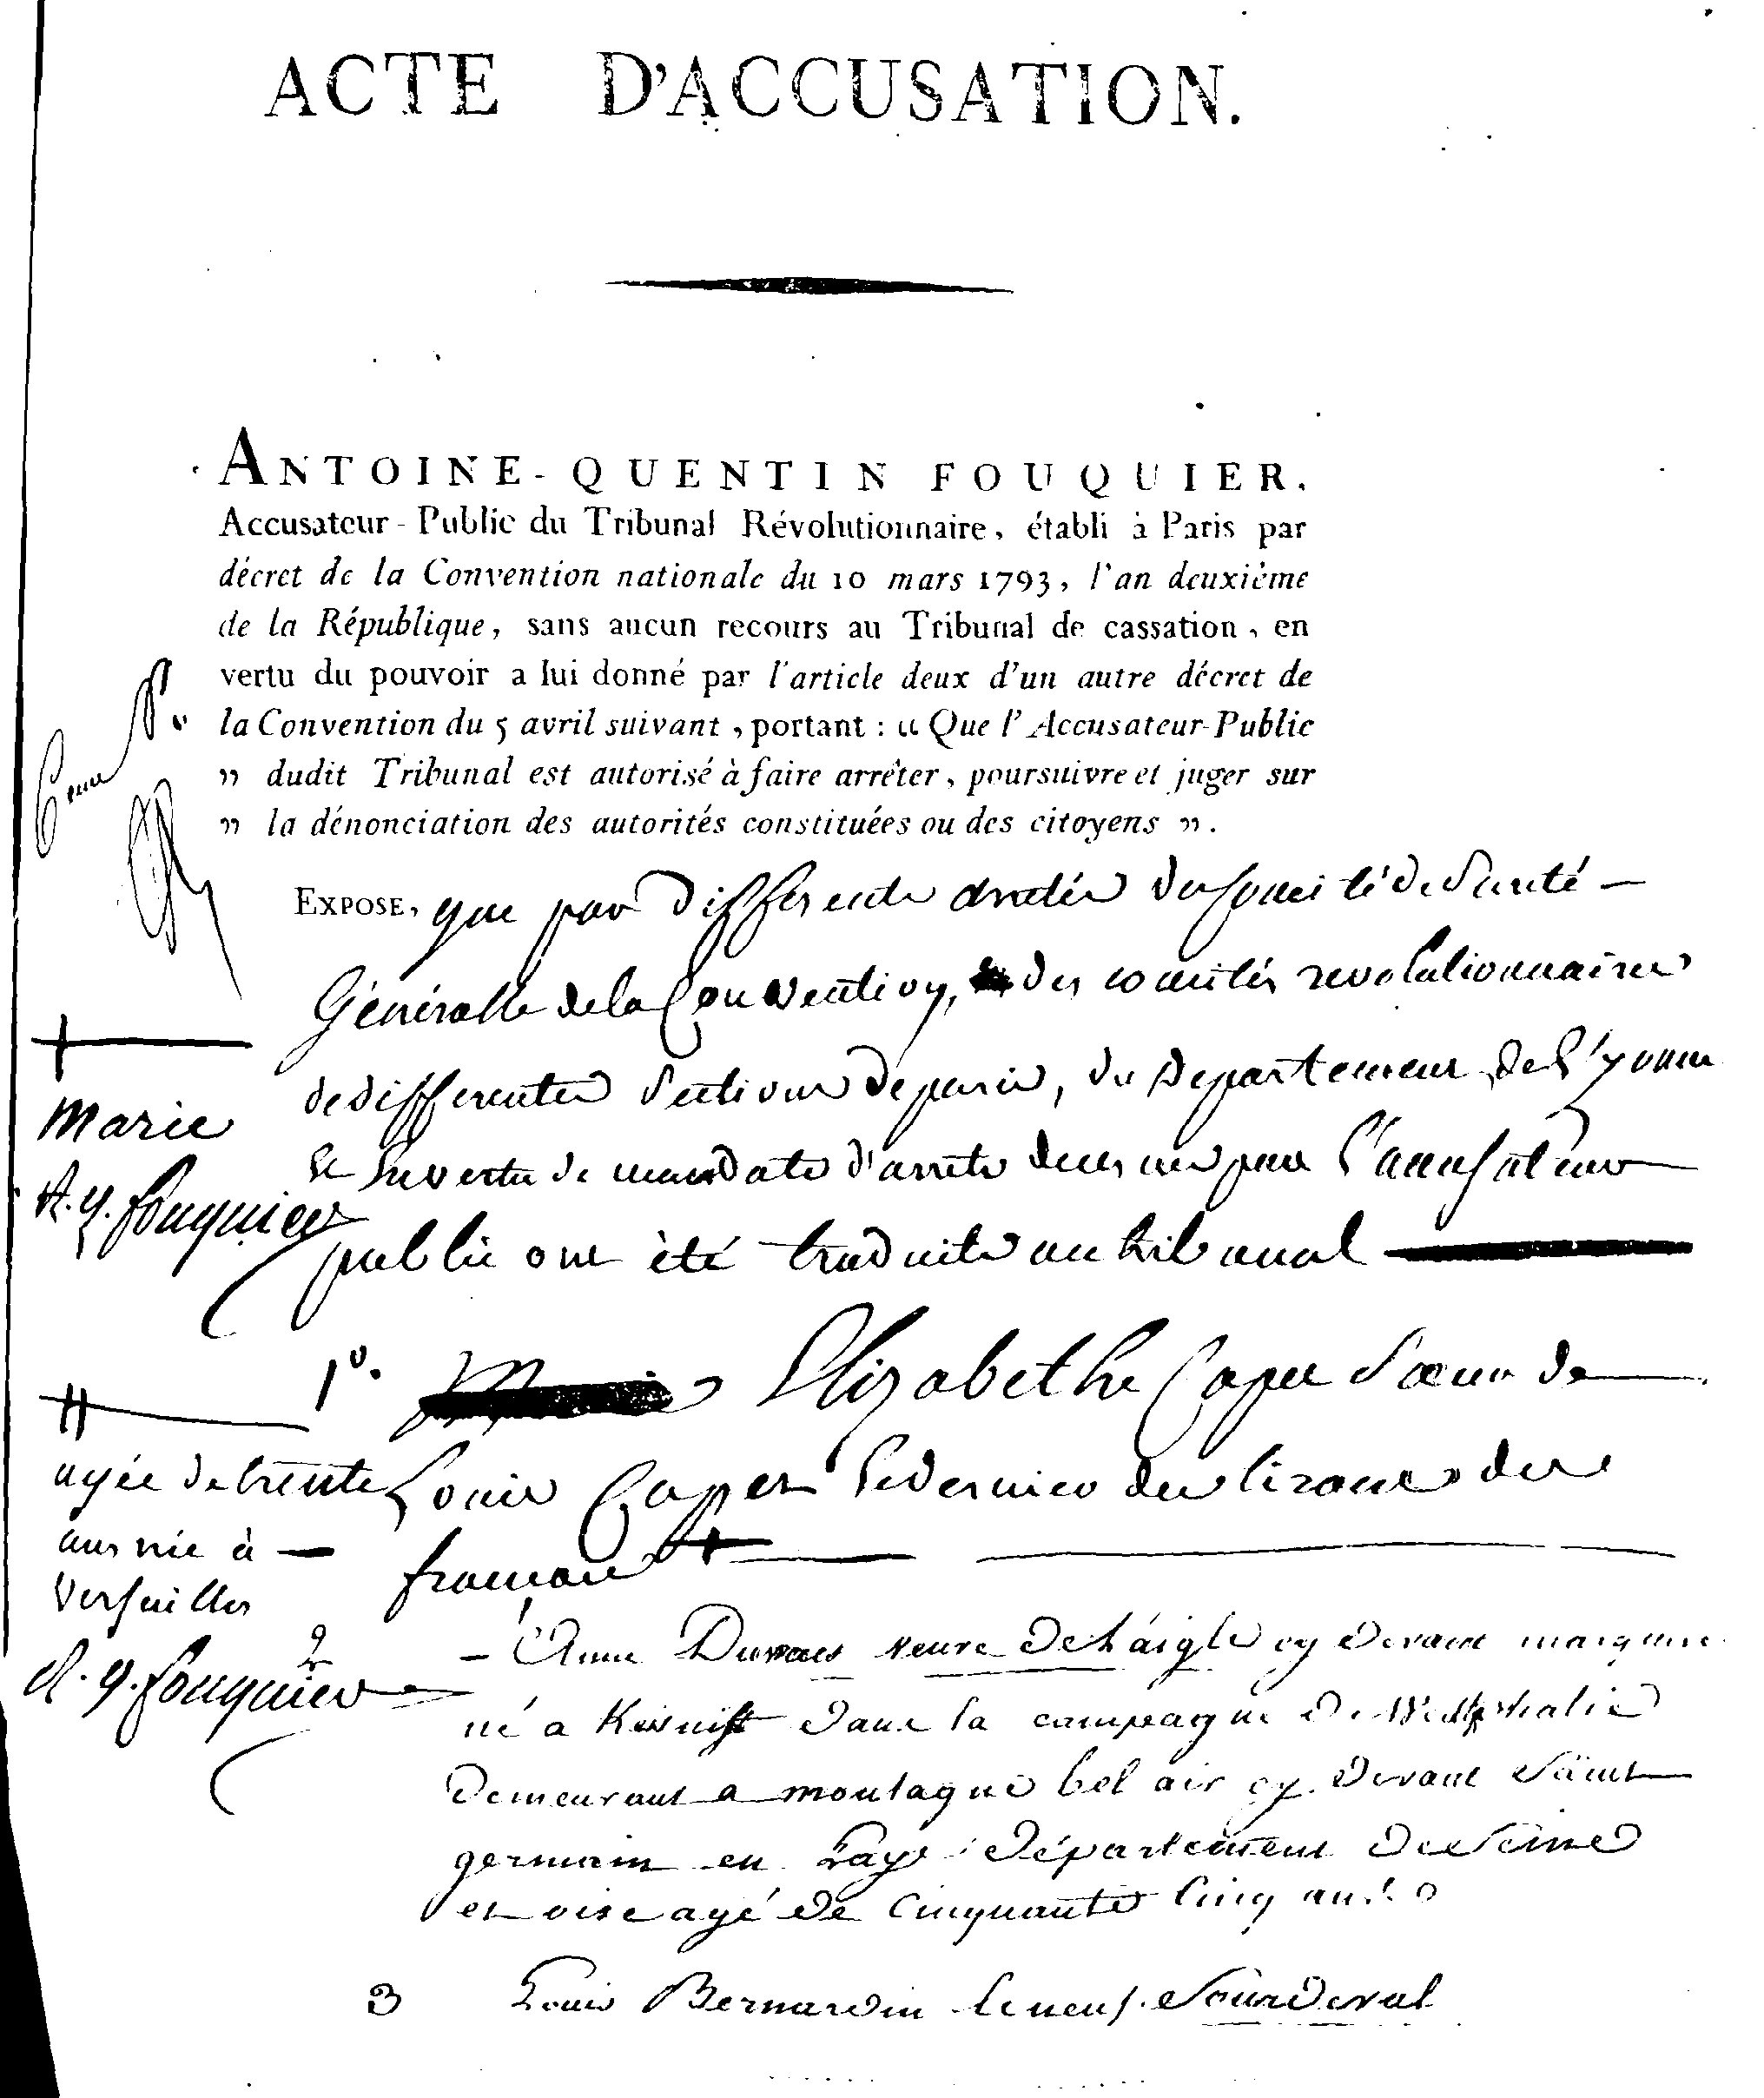 ACTE D'ACCUSATION.
ANTOINE-QUENTIN FOUQUIER,
Accusateur-Public du Tribunal Révolutionnaire, établi à Paris par
décret de la Convention nationale du 10 mars 1793, l'an deuxième
de la République, sans aucun recours au Tribunal de cassation, en
vertu du pouvoir a lui donné par l'article deux d'un autre décret de
la Convention du 5 avril suivant, portant : « Que l'Accusateur-Public
» dudit Tribunal est autorisé à faire arrêter, poursuivre et juger sur
» la dénonciation des autorités constituées ou des citoyens ».
EXPOSE, que par differents arretés du Comité de Sureté
Généralle de la Convention, des comités revolutionnaires
de differentes Sections de paris, du Departement de l'yonne
et en vertu de mandats d'arrets decernés par l'accusateur
public ont été traduits au tribunal
Marie
A. q. fouquier
1º. Elizabethe Capet Sœur de
Louis Capet le dernier des tirans des
francais
agée de trente
ans née à
Versailles
A. q. fouquier
2 Anne Duwaes veuve De L'aigle cy Devant marquise
né a Keisnist dans la campagne De Westphalie
Demeurant a montagne bel air cy Devant Saint
germain en Laye Département De Seine
et oise agé De Cinquante Cinq ans
3 Louis Bernardin Leneuf Sourdeval